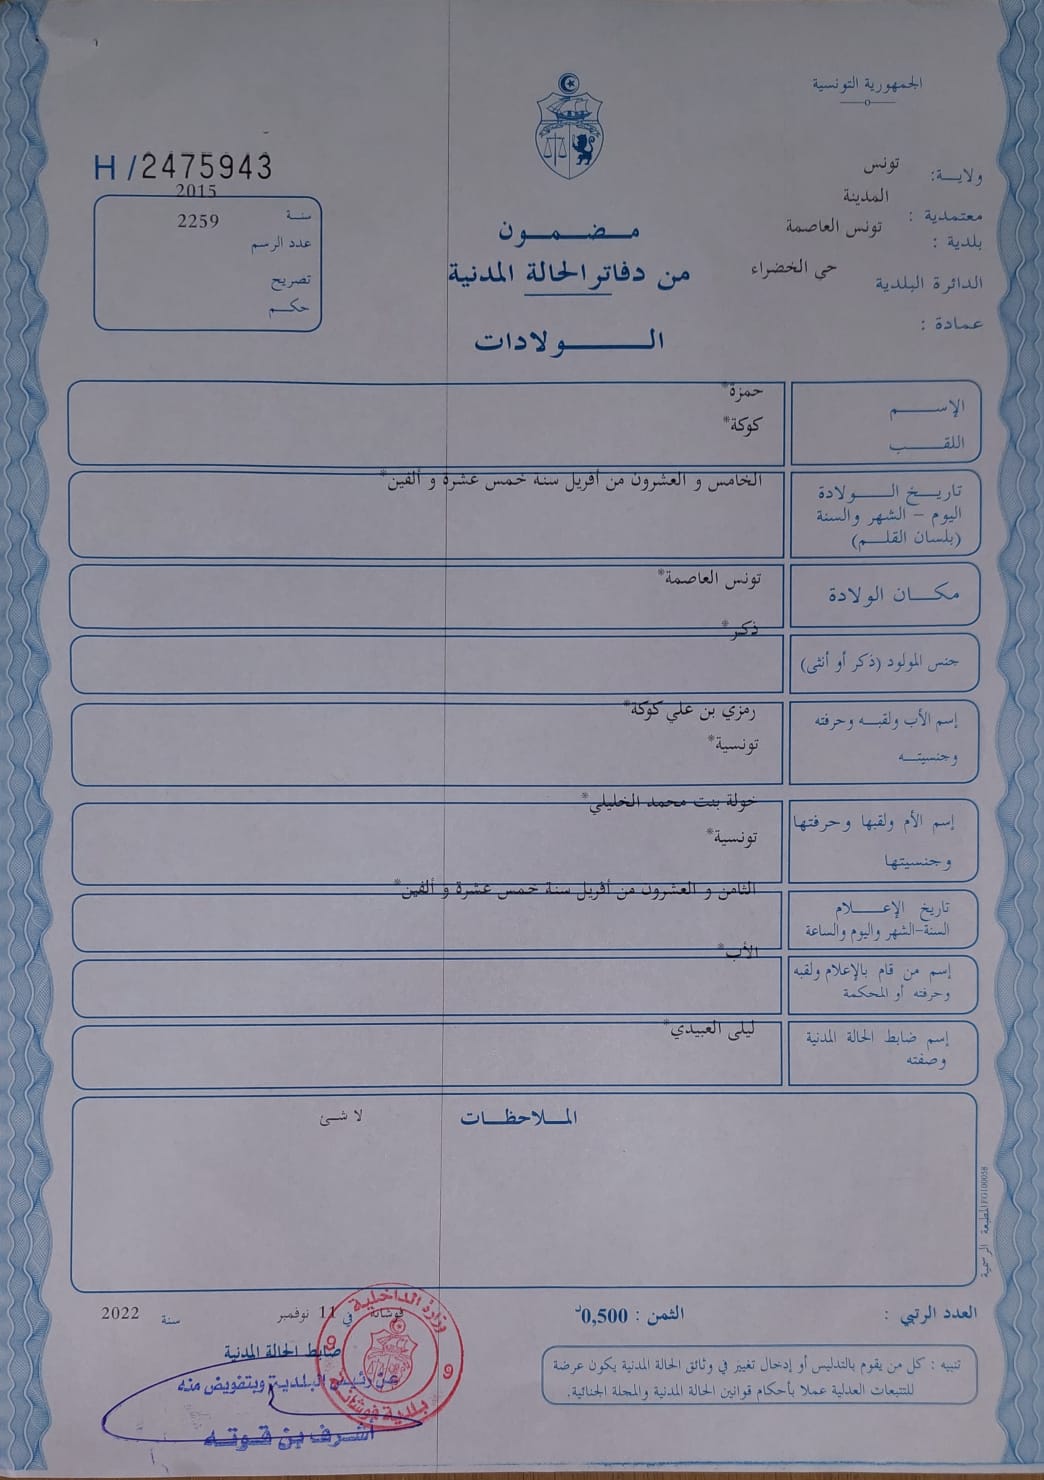 الجمهورية التونسية
ولاية: تونس
معتمدية : المدينة
بلدية : تونس العاصمة
الدائرة البلدية حي الخضراء
عمادة :
H/2475943
سنة 2015
عدد الرسم 2259
تصريح
حكم
مضمون
من دفاتر الحالة المدنية
الولادات
الإسم حمزة*
اللقب كوكة*
تاريخ الولادة الخامس و العشرون من أفريل سنة خمس عشرة و ألفين*
اليوم - الشهر والسنة
(بلسان القلم)
مكان الولادة تونس العاصمة*
جنس المولود (ذكر أو أنثى) ذكر*
إسم الأب ولقبه وحرفته رمزي بن علي كوكة*
وجنسيته تونسية*
إسم الأم ولقبها وحرفتها خولة بنت محمد الخليلي*
وجنسيتها تونسية*
تاريخ الإعلام الثامن و العشرون من أفريل سنة خمس عشرة و ألفين*
السنة-الشهر واليوم والساعة
إسم من قام بالإعلام ولقبه الأب*
وحرفته أو المحكمة
إسم ضابط الحالة المدنية ليلى العبيدي*
وصفته
الملاحظات لا شئ
المطبعة الرسمية FG100058
العدد الرتبي :
الثمن : 0,500د
فوشانة في 11 نوفمبر سنة 2022
تنبيه : كل من يقوم بالتدليس أو إدخال تغيير في وثائق الحالة المدنية يكون عرضة
للتتبعات العدلية عملا بأحكام قوانين الحالة المدنية والمجلة الجنائية.
ضابط الحالة المدنية
عن رئيس البلدية وبتفويض منه
اشرف بن قوته
وزارة الداخلية
9 9
بلدية فوشانة